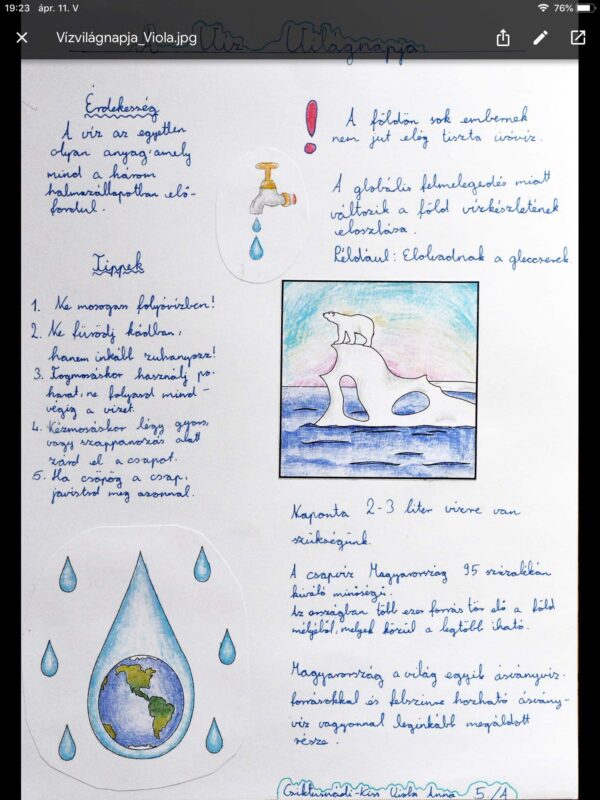 19:23 ápr. 11. V
76%
Vizvilágnapja_Viola.jpg
A Víz Világnapja
Érdekesség
A víz az egyetlen
olyan anyag, amely
mind a három
halmazállapotban elő-
fordul.
A földön sok embernek
nem jut elég tiszta ivóvíz.
A globális felmelegedés miatt
változik a föld vízkészletének
eloszlása.
Például: Elolvadnak a gleccserek
Tippek
1. Ne mosogass folyóvízben!
2. Ne fürödj kádban,
hanem inkább zuhanyozz!
3. Fogmosáskor használj po-
harat, ne folyasd mind-
végig a vizet.
4. Kézmosáskor légy gyors,
vagy szappanozás alatt
zárd el a csapot.
5. Ha csöpög a csap,
javíttasd meg azonnal.
Naponta 2-3 liter vízre van
szükségünk.
A csapvíz Magyarország 95 százalékán
kiváló minőségű.
Az országban több ezer forrás tör elő a föld
mélyéből, melyek közül a legtöbb iható.
Magyarország a világ egyik ásványvíz-
forrásokkal és felszínre hozható ásvány-
víz vagyonnal leginkább megáldott
része.
Csiktusnádi-Kiss Viola Anna 5./A